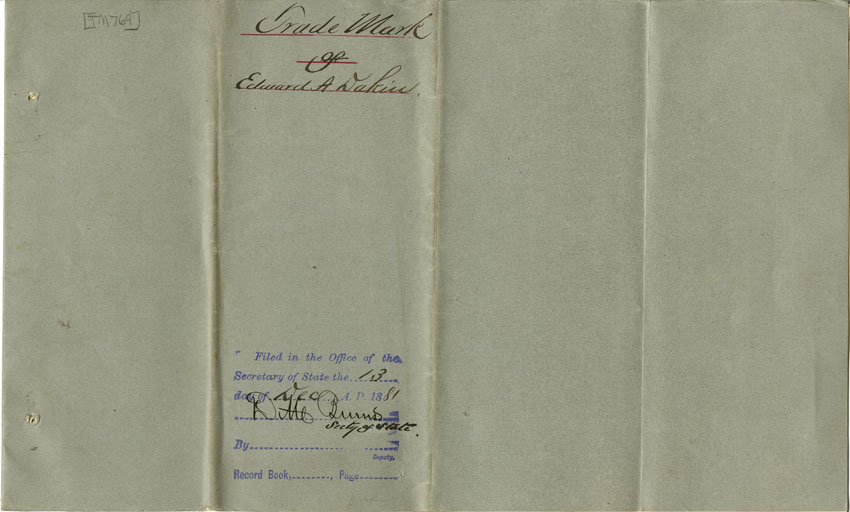 [TM 764]
Trade Mark
of
Edward A Dakin.
Filed in the Office of the
Secretary of State the 13
day of Dec A. D. 1881
Burns
Secty of State.
By
Deputy.
Record Book, , Page